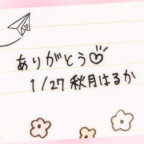 ありがとう♡
1/27 秋月はるか